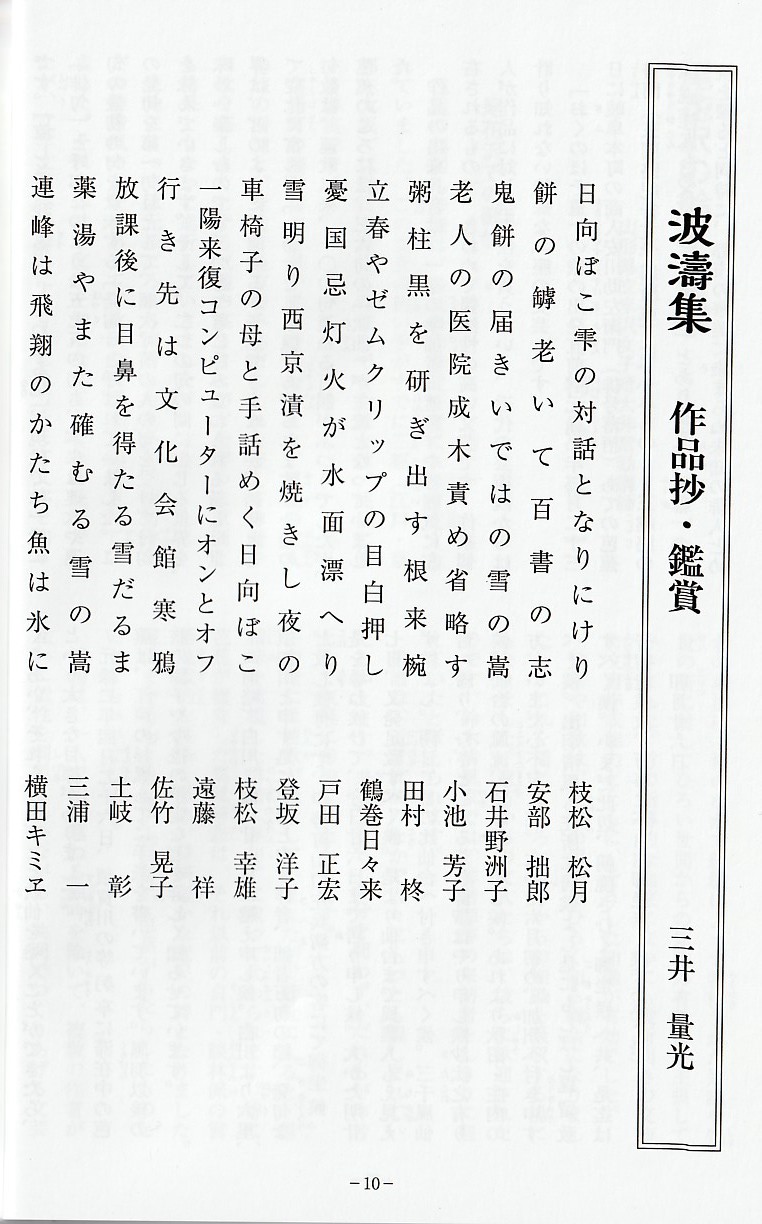 波濤集　作品抄・鑑賞　三井　量光
日向ぼこ雫の対話となりにけり　枝松　松月
餅の罅老いて百書の志　安部　拙郎
鬼餅の届きいではの雪の嵩　石井野洲子
老人の医院成木責め省略す　小池　芳子
粥柱黒を研ぎ出す根来椀　田村　柊
立春やゼムクリップの目白押し　鶴巻日々来
憂国忌灯火が水面漂へり　戸田　正宏
雪明り西京漬を焼きし夜の　登坂　洋子
車椅子の母と手話めく日向ぼこ　枝松　幸雄
一陽来復コンピューターにオンとオフ　遠藤　祥
行き先は文化会館寒鴉　佐竹　晃子
放課後に目鼻を得たる雪だるま　土岐　彰
薬湯やまた確むる雪の嵩　三浦　一
連峰は飛翔のかたち魚は氷に　横田キミヱ
－10－